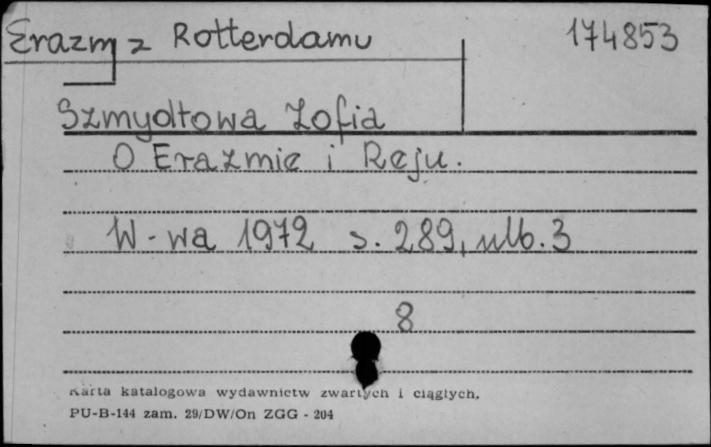 Erazm z Rotterdamu 174853
Szmydtowa Zofia
O Erazmie i Reju.
W-wa 1972 s. 289, nlb. 3
8
Karta katalogowa wydawnictw zwartych i ciągłych.
PU-B-144 zam. 29/DW/On ZGG - 204